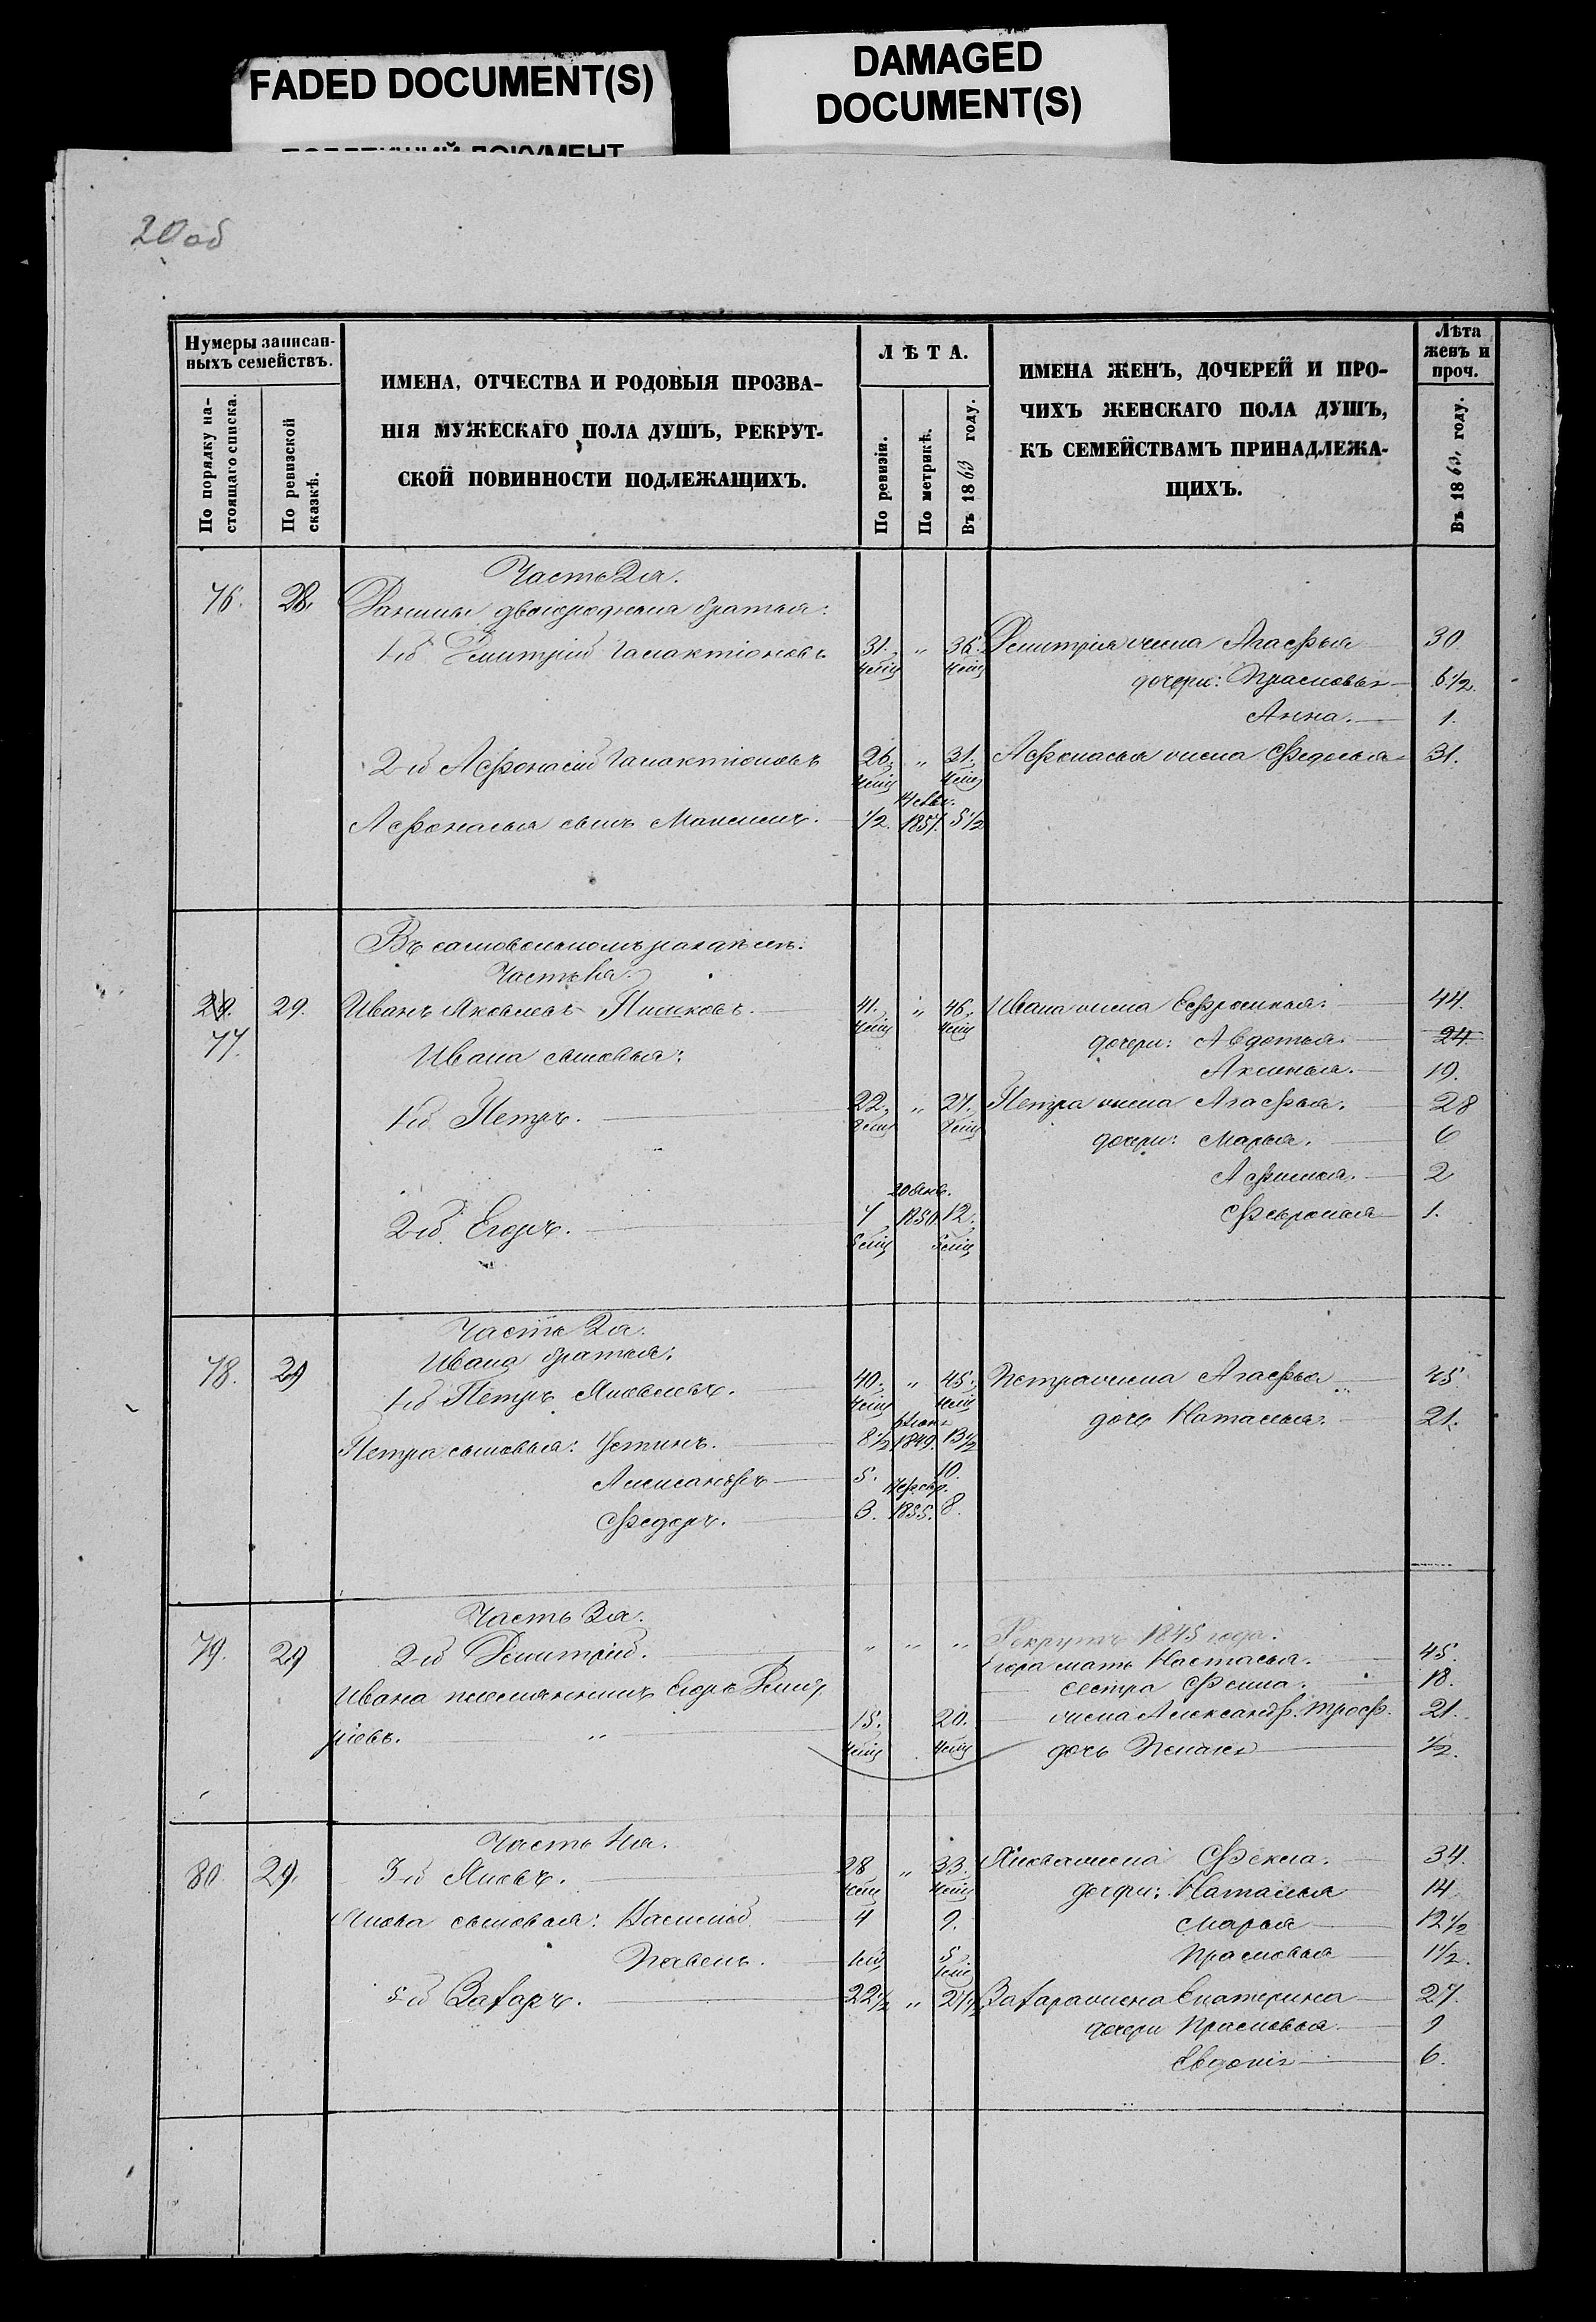 FADED DOCUMENT(S)
DAMAGED
DOCUMENT(S)
20об
Нумеры записан-
ныхъ семействъ.
По порядку на-
стоящаго списка.
По ревизской
сказкѣ.
ИМЕНА, ОТЧЕСТВА И РОДОВЫЯ ПРОЗВА-
НІЯ МУЖЕСКАГО ПОЛА ДУШЪ, РЕКРУТ-
СКОЙ ПОВИННОСТИ ПОДЛЕЖАЩИХЪ.
ЛѢТА.
По ревизіи.
По метрикѣ.
Въ 1863 году.
ИМЕНА ЖЕНЪ, ДОЧЕРЕЙ И ПРО-
ЧИХЪ ЖЕНСКАГО ПОЛА ДУШЪ,
КЪ СЕМЕЙСТВАМЪ ПРИНАДЛЕЖА-
ЩИХЪ.
Лѣта
женъ и
проч.
Въ 1863 году.
Часть 2я.
76. 28. двоюродныя братья:
1й Дмитрій Галактіоновъ 31. " 36. Дмитрія жена Агафья 30
дочери: Прасковья 6 1/2.
Анна. 1.
2й Афонасій Галактіоновъ 26. " 31. Афонасья жена Федосья 31.
Афонасья сынъ Максимъ. 1/2. 1857. 5 1/2
Въ самовольномъ раздѣлѣ:
Часть 1я.
29. 29. Иванъ Яковлевъ 41. " 46. Ивана жена Ефросинья: 44.
77. Ивана сыновья: дочери: Авдотья. 24.
Аксинья. 19.
1й Петръ. 22. " 27. Петра жена Агафья. 28
дочери: Марья. 6
Афимья. 2
2й Егоръ. 7 1850. 12. Февронья 1.
Часть 2я.
Ивана братья:
78. 29 1й Петръ Яковлевъ. 40. " 45. Петра жена Агафья 45
дочь Наталья. 21.
Петра сыновья: Устинъ. 8 1/2 1849. 13 1/2
Александръ 5. 10.
Федоръ. 3. 1855. 8.
Часть 3я.
Рекрутъ 1845 года.
79. 29 2й Дмитрій. " " " Егора мать Настасья. 45.
Ивана племянникъ Егоръ Дмит- сестра Фекла. 18.
ріевъ. 15. 20. жена Александр. Троф. 21.
дочь Пелагея 1/2.
Часть 4я.
80. 29. 3й Яковъ. 28 " 33. Якова жена Фекла. 34.
дочери: Наталья 14
Якова сыновья: Василій 4 9. Марья 12 1/2
Павелъ. 5 Прасковья 1 1/2.
5й Захаръ. 22 1/2 " 27 1/2 Захара жена Екатерина 27.
дочери Прасковья 9
Евдокія 6.